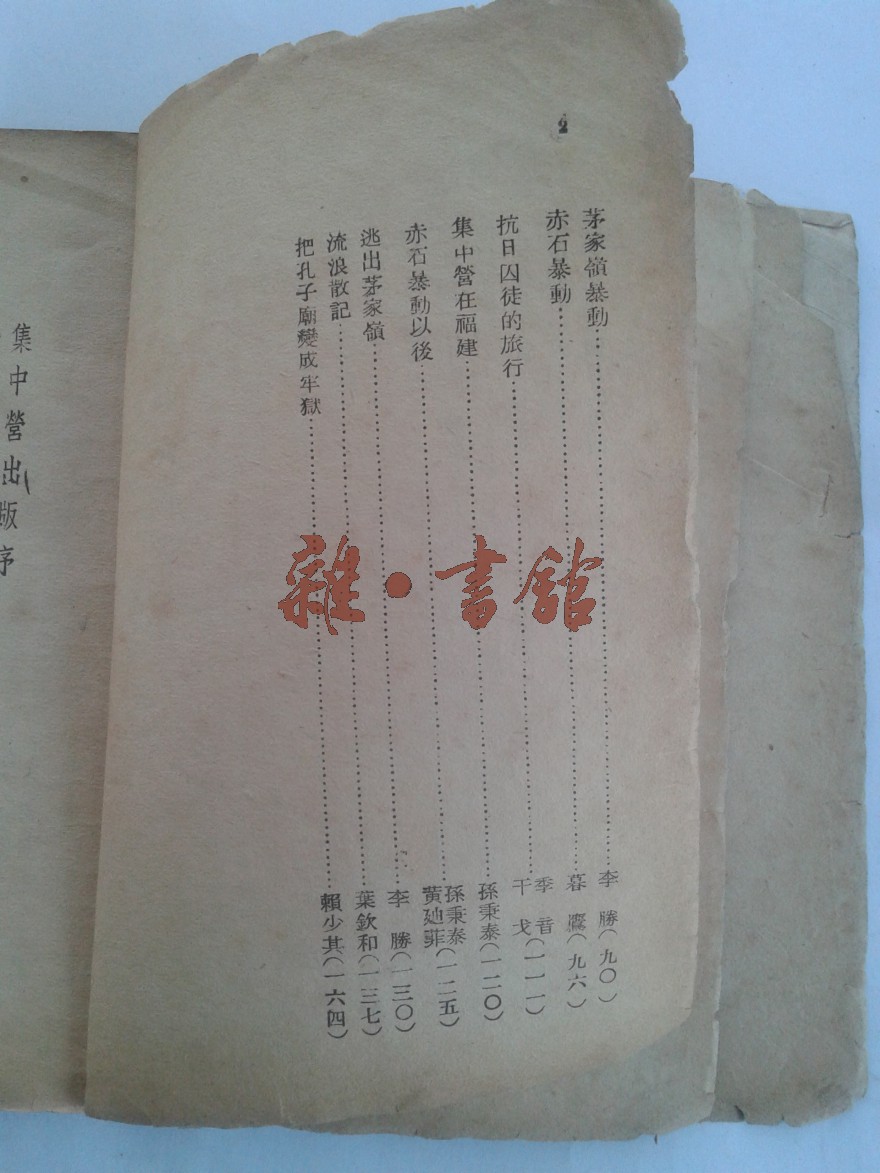 2
茅家嶺暴動……李　勝(九〇)
赤石暴動……暮　鷹(九六)
抗日囚徒的旅行……季　音　干　戈(一一一)
集中營在福建……孫秉泰(一二〇)
赤石暴動以後……孫秉泰　黄迪菲(一二五)
逃出茅家嶺……李　勝(一三〇)
流浪散記……葉欽和(一三七)
把孔子廟變成牢獄……賴少其(一六四)
集中營出版序
雜·書館